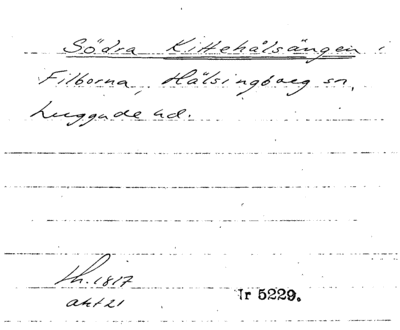 Södra Kittehålsängen i
Filborna, Hälsingborg sn,
Luggude hd.
Lh. 1817
akt 21
Nr 5229.